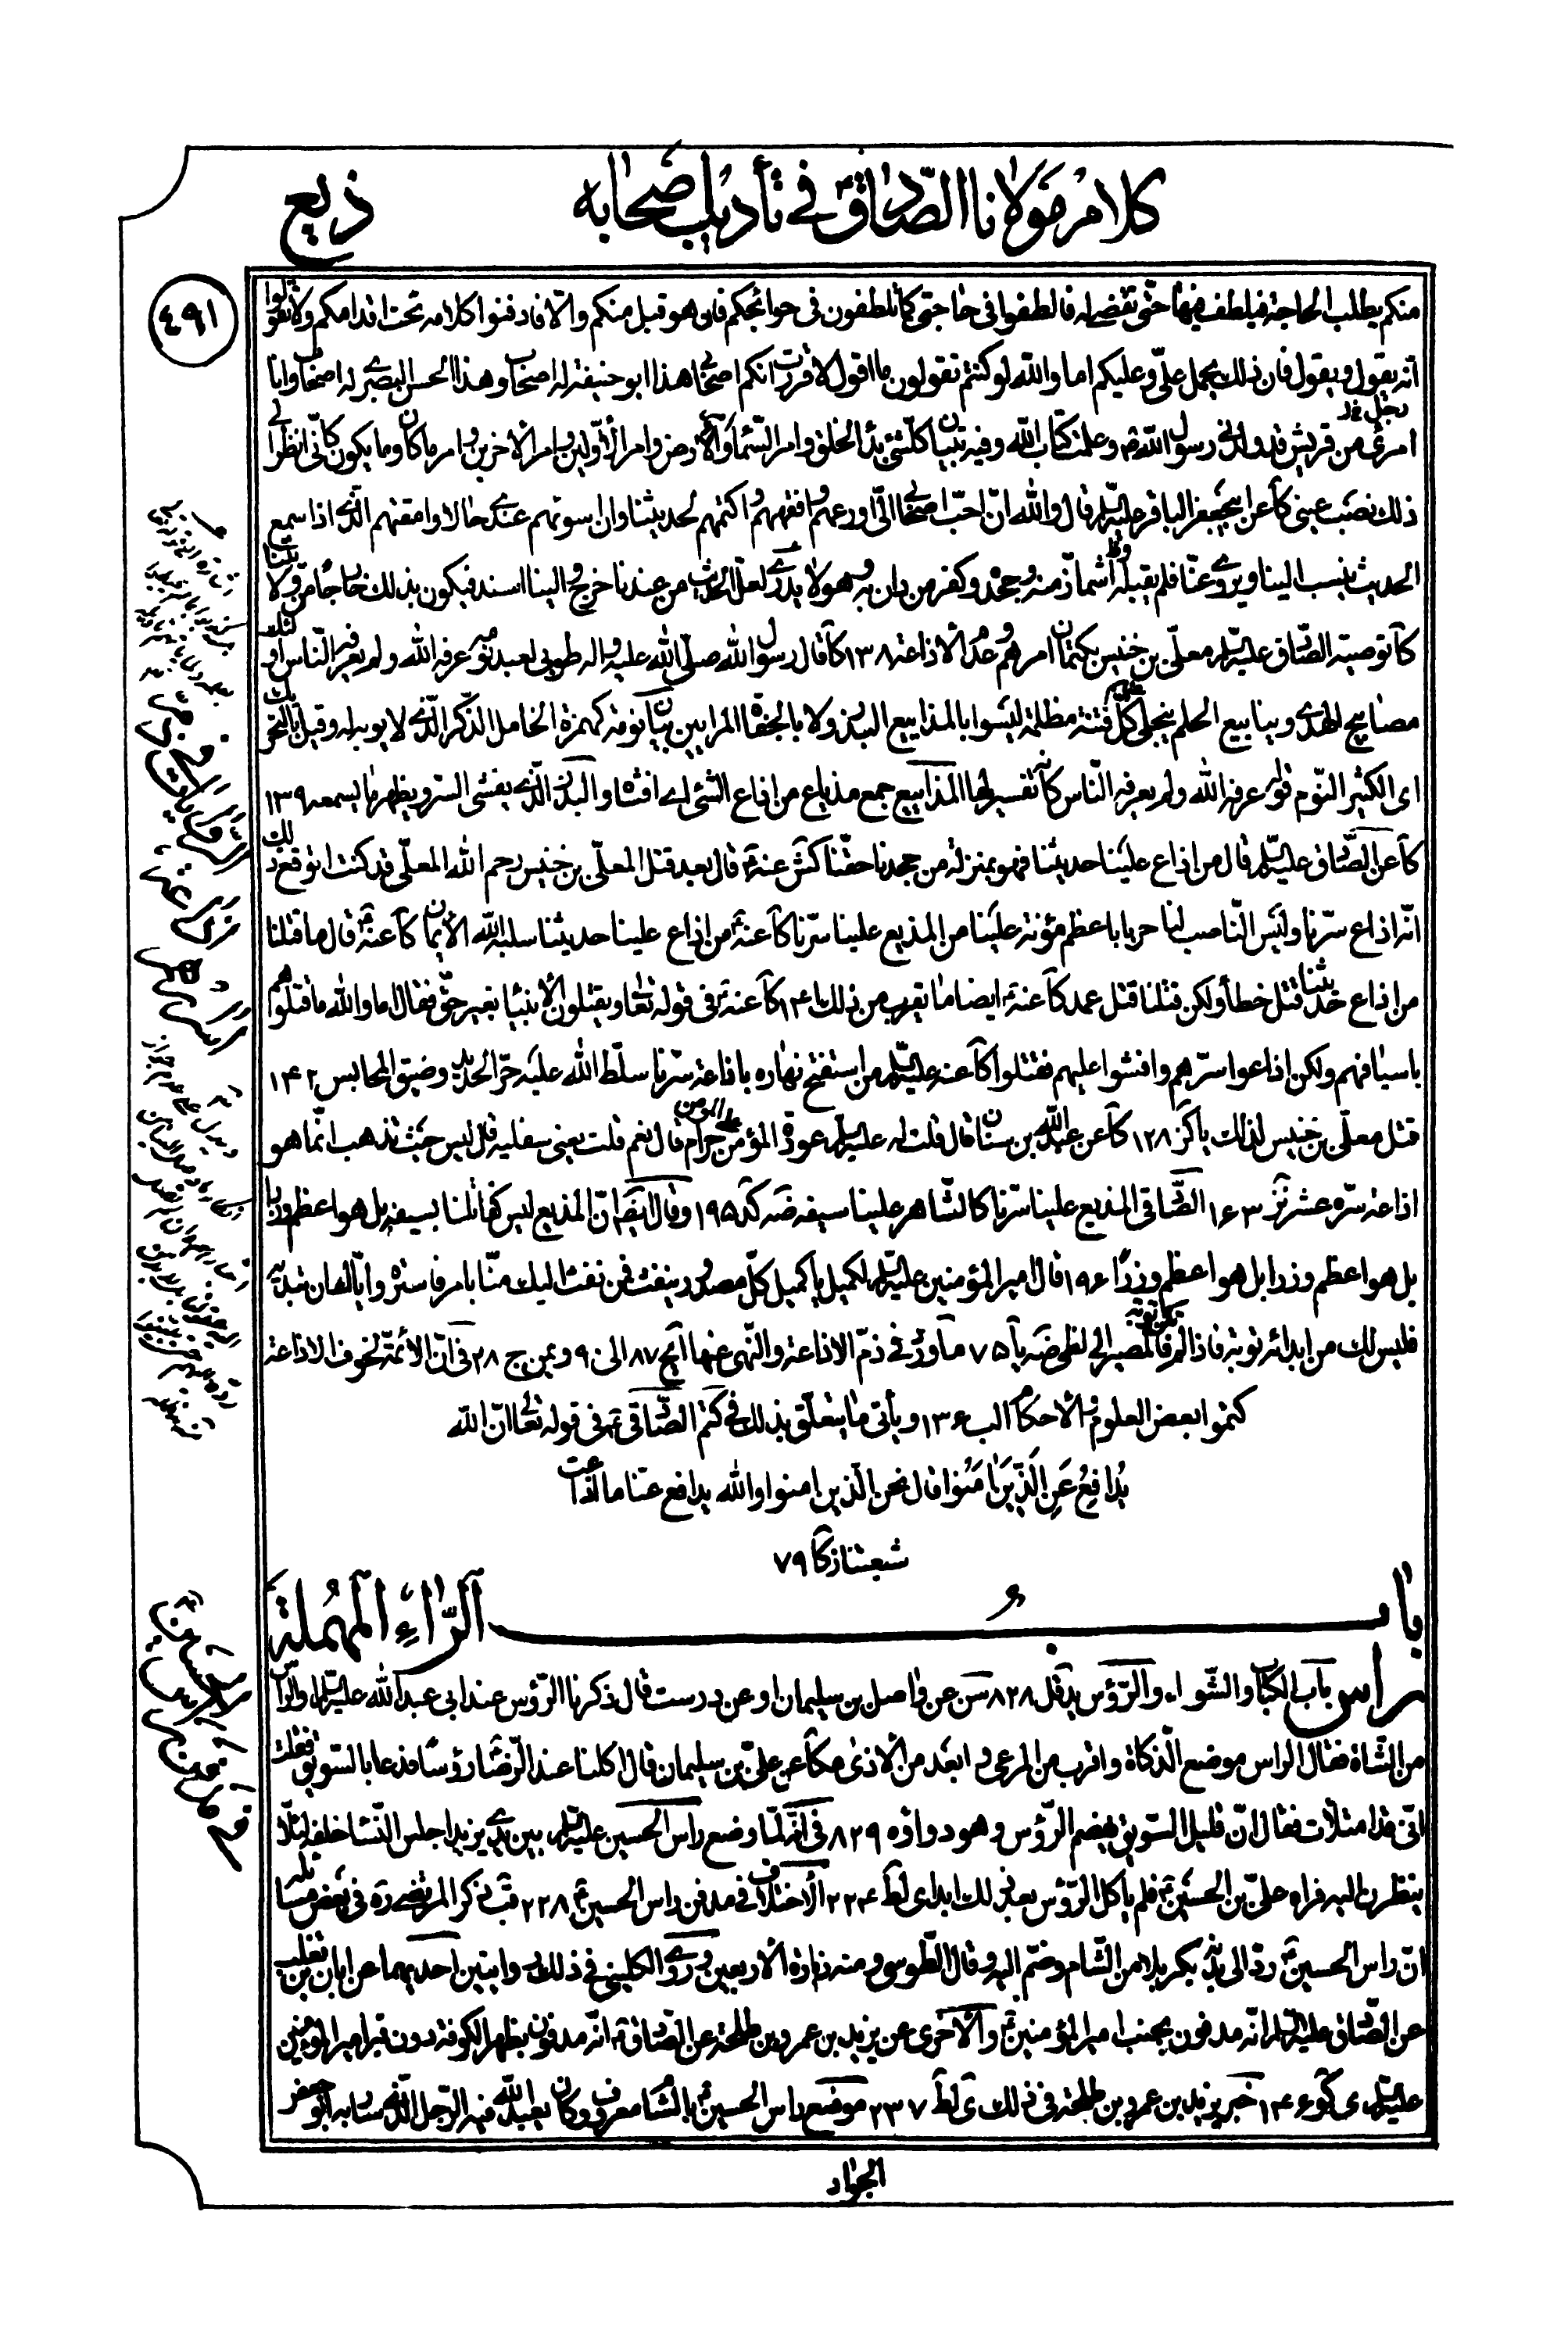 كلام مولانا الصّادق ع في تأديب أصحابه
ذيع
٤٩١
منكم يطلب الحاجة فيلطف فيها حتّى تقضى له فالطفوا في حاجتي كما تلطفون في حوائجكم فان هو قبل منكم والّا فادفنوا كلامه تحت اقدامكم ولا تقولوا
انّه يقول ويقول فان ذلك يحمل عليّ وعليكم اما والله لو كنتم تقولون ما اقول لاقررت انكم اصحابي هذا ابو حنيفة له اصحاب وهذا الحسن البصري له اصحاب وانا
امرئ من قريش قد ولدني رسول الله ص وعلمت كتاب الله وفيه تبيان كلّ شئ بدأ الخلق وامر السّماء والأرض وامر الأوّلين وامر الآخرين وامر ما كان وما يكون كأنّي انظر الى
ذلك نصب عيني كا عن ابي جعفر الباقر عليه السلام قال والله انّ احبّ اصحابي الىّ اورعهم وافقههم واكتمهم لحديثنا وان اسوئهم عندي حالا وامقتهم الّذي اذا سمع
الحديث ينسب الينا ويروى عنّا فلم يقبله اشمأزّ منه وجحده وكفر من دان به وهو لا يدري لعلّ الحديث من عندنا خرج والينا اسند فيكون بذلك خارجا من ولايتنا
كا توصية الصّادق عليه السلام معلّى بن خنيس بكتمان امرهم وحدّ الاذاعة ١٣٨ كا قال رسول الله صلّى الله عليه واله طوبى لعبد نومة عرفه الله ولم يعرفه النّاس اولئك
مصابيح الهدى وينابيع العلم ينجلي عنهم كلّ فتنة مظلمة ليسوا بالمذاييع البذر ولا بالجفاة المرائين بيان نومة كهمزة الخامل الذّكر الّذي لا يوبه له وقيل بالتحريك
اى الكثير النّوم قوله عرفه الله ولم يعرفه النّاس كأنه تفسير لها المذاييع جمع مذياع من اذاع الشّئ اى افشاه والبذر الّذي يفشي السّر ويظهر ما يسمعه ١٣٩
كا عن الصّادق عليه السلام قال من اذاع علينا حديثنا فهو بمنزلة من جحدنا حقّنا كش عنه ع قال بعد قتل المعلّى بن خنيس رحم الله المعلّى قد كنت اتوقع ذلك
انّه اذاع سرّنا وليس النّاصب لنا حربا باعظم مؤنة علينا من المذيع علينا سرّنا كا عنه ع من اذاع علينا حديثنا سلبه الله الايمان كا عنه ع قال ما قتلنا
من اذاع حديثنا قتل خطأ ولكن قتلنا قتل عمد كا عنه ع ايضا ما يقرب من ذلك ١٤١ كا عنه ع في قوله تعالى ويقتلون الأنبياء بغير حقّ فقال اما والله ما قتلوهم
باسيافهم ولكن اذاعوا سرّهم وافشوا عليهم فقتلوا كا عنه عليه السلام من استفتح نهاره باذاعة سرّنا سلّط الله عليه حرّ الحديد وضيق المحابس ١٤٢
قتل معلّى بن خنيس لذلك يا كز ١٢٨ كا عن عبد الله بن سنان قال قلت له عليه السلام عورة المؤمن على المؤمن حرام قال نعم قلت يعني سفليه قال ليس حيث تذهب انّما هو
اذاعة سرّه عشر نز ١٦٣ الصّادقي المذيع علينا سرّنا كالشّاهر علينا سيفه ضه كد ١٩٥ وقال ايضا انّ المذيع ليس كقاتلنا بسيفه بل هو اعظم وزرا
بل هو اعظم وزرا بل هو اعظم وزرا ١٩٦ قال امير المؤمنين عليه السلام لكميل يا كميل كلّ مصدور ينفث فمن نفث اليك منّا بامر فاستره وايّاك ان تبديه
فليس لك من ابدائه توبة فاذا لم تكن توبة فالمصير الى لظى ضه يا ٧٥ ما ورد في ذمّ الاذاعة والنّهي عنها ايج ٨٧ الى ٩٠ ويمن ج ٢٨ في انّ الأئمّة لخوف الاذاعة
كتموا بعض العلوم والاحكام الب ١٣٦ ويأتي ما يتعلّق بذلك في كتم الصّادقي ع في قوله تعالى انّ الله
يُدافِعُ عَنِ الَّذينَ امَنُوا قال نحن الّذين امنوا والله يدافع عنّا ما اذاعت
شيعتنا ز كا ٧٩
بابُ الرّاءِ المُهمَلة
راس باب الكباب والشّواء والرّؤس يد قل ٨٢٨ سن عن واصل بن سليمان او عن درست قال ذكرنا الرّؤس عند ابي عبد الله عليه السلام والرّاس
من الشّاة فقال الراس موضع الذكاة واقرب من المرعى وابعد من الاذى مكا عن عليّ بن سليمان قال اكلنا عند الرّضا ع رؤسا فدعا بالسويق فقلت
انّي قد امتلأت فقال انّ قليل السّويق يهضم الرّؤس وهو دواؤه ٨٢٩ في انّه لمّا وضع راس الحسين عليه السلام بين يدي يزيد اجلس النّساء خلفه لئلّا
ينظرن اليه فراه عليّ بن الحسين ع فلم ياكل الرّؤس بعد ذلك ابدا ى لط ٢٢٤ الاختلاف في مدفن راس الحسين ع ٢٢٨ قب ذكر المرتضى ره في بعض مسائله
انّ راس الحسين ع ردّ الى بدنه بكربلا من الشّام وضمّ اليه وقال الطّوسي ومنه زيارة الاربعين وروى الكليني في ذلك روايتين احديهما عن ابان بن تغلب
عن الصّادق عليه السلام انّه مدفون بجنب امير المؤمنين ع والأخرى عن يزيد بن عمرو بن طلحة عن الصّادق ع انّه مدفون بظهر الكوفة دون قبر امير المؤمنين
عليه السلام ى كو ١٤٦ خبر يزيد بن عمرو بن طلحة في ذلك ى لط ٢٣٧ موضع راس الحسين ع بالشّام معروف وكان يعبد الله فيه الرّجل الّذي سار به ابو جعفر
الجواد